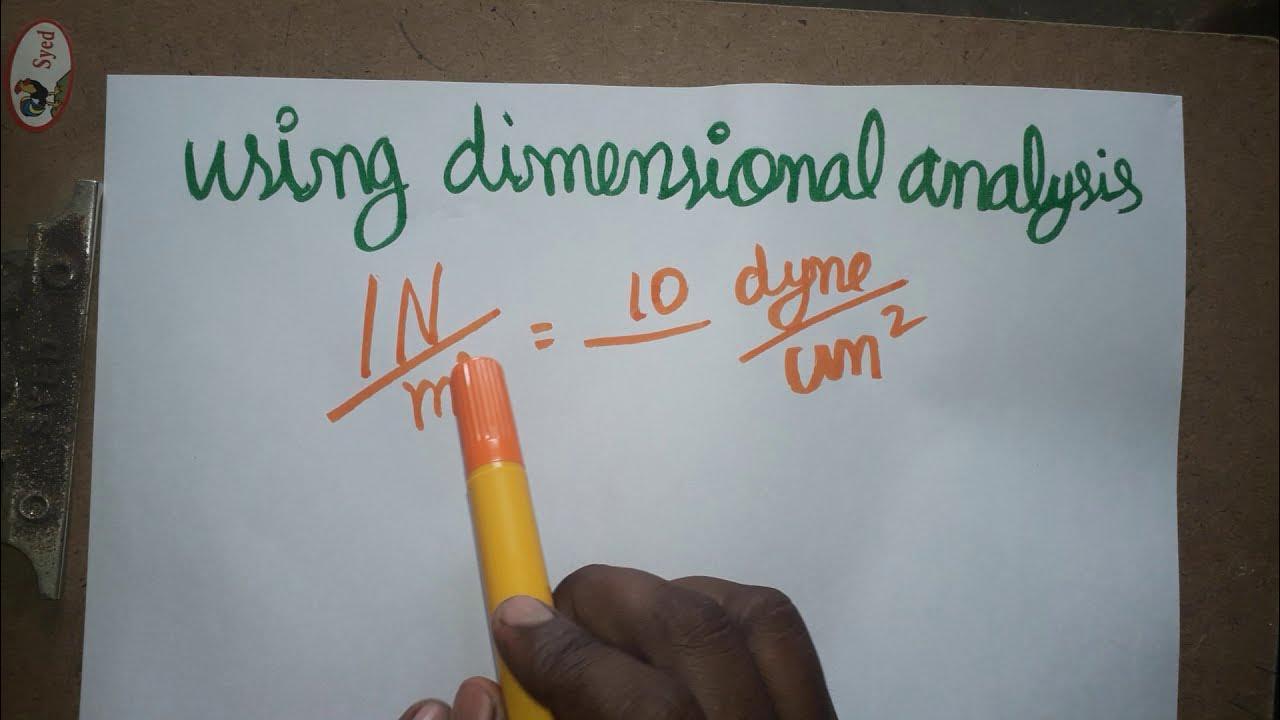 Syed
using dimensional analysis
1N/m = 10 dyne/cm²